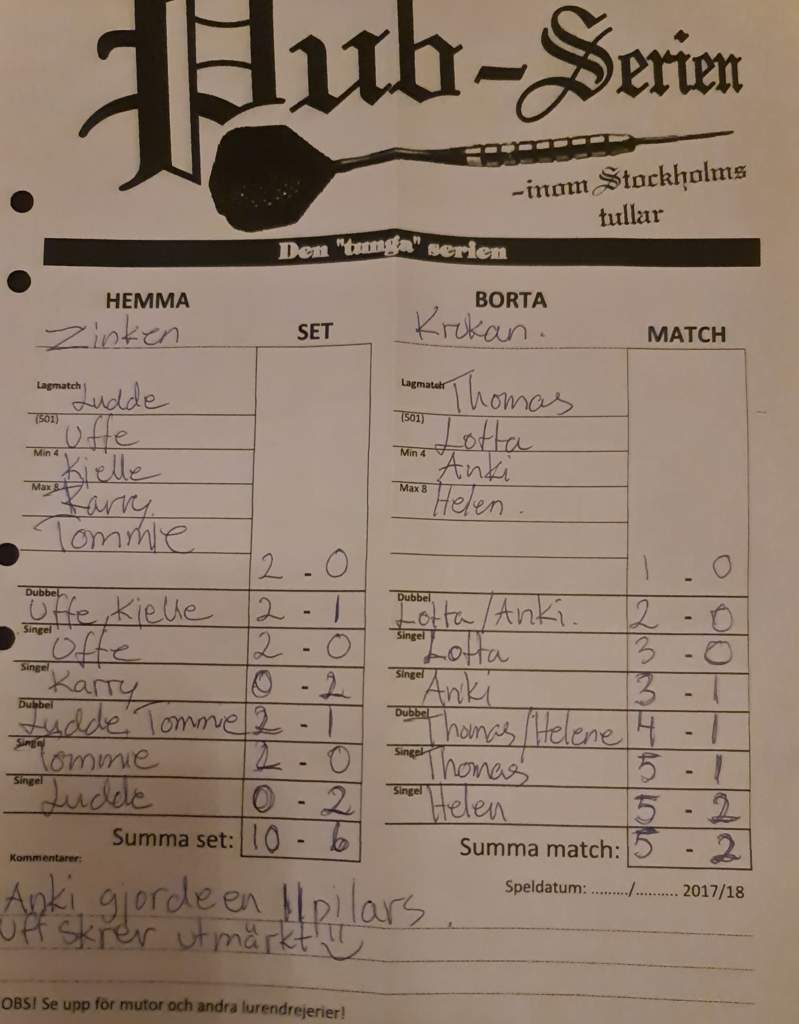 Pub-Serien
-inom Stockholms
tullar
Den "tunga" serien
HEMMA BORTA
Zinken SET Krukan. MATCH
Lagmatch Ludde Lagmatch Thomas
(501) Uffe (501) Lotta
Min 4 Kjelle Min 4 Anki
Max 8 Karry Max 8 Helen.
Tommie
2 - 0 1 - 0
Dubbel Uffe, Kjelle 2 - 1 Dubbel Lotta/Anki. 2 - 0
Singel Uffe 2 - 0 Singel Lotta 3 - 0
Singel Karry 0 - 2 Singel Anki 3 - 1
Dubbel Ludde, Tommie 2 - 1 Dubbel Thomas/Helene 4 - 1
Singel Tommie 2 - 0 Singel Thomas 5 - 1
Singel Ludde 0 - 2 Singel Helen 5 - 2
Summa set: 10 - 6 Summa match: 5 - 2
Kommentarer: Speldatum: ........./.......... 2017/18
Anki gjorde en 11 pilars.
Uff skrev utmärkt!!
OBS! Se upp för mutor och andra lurendrejerier!